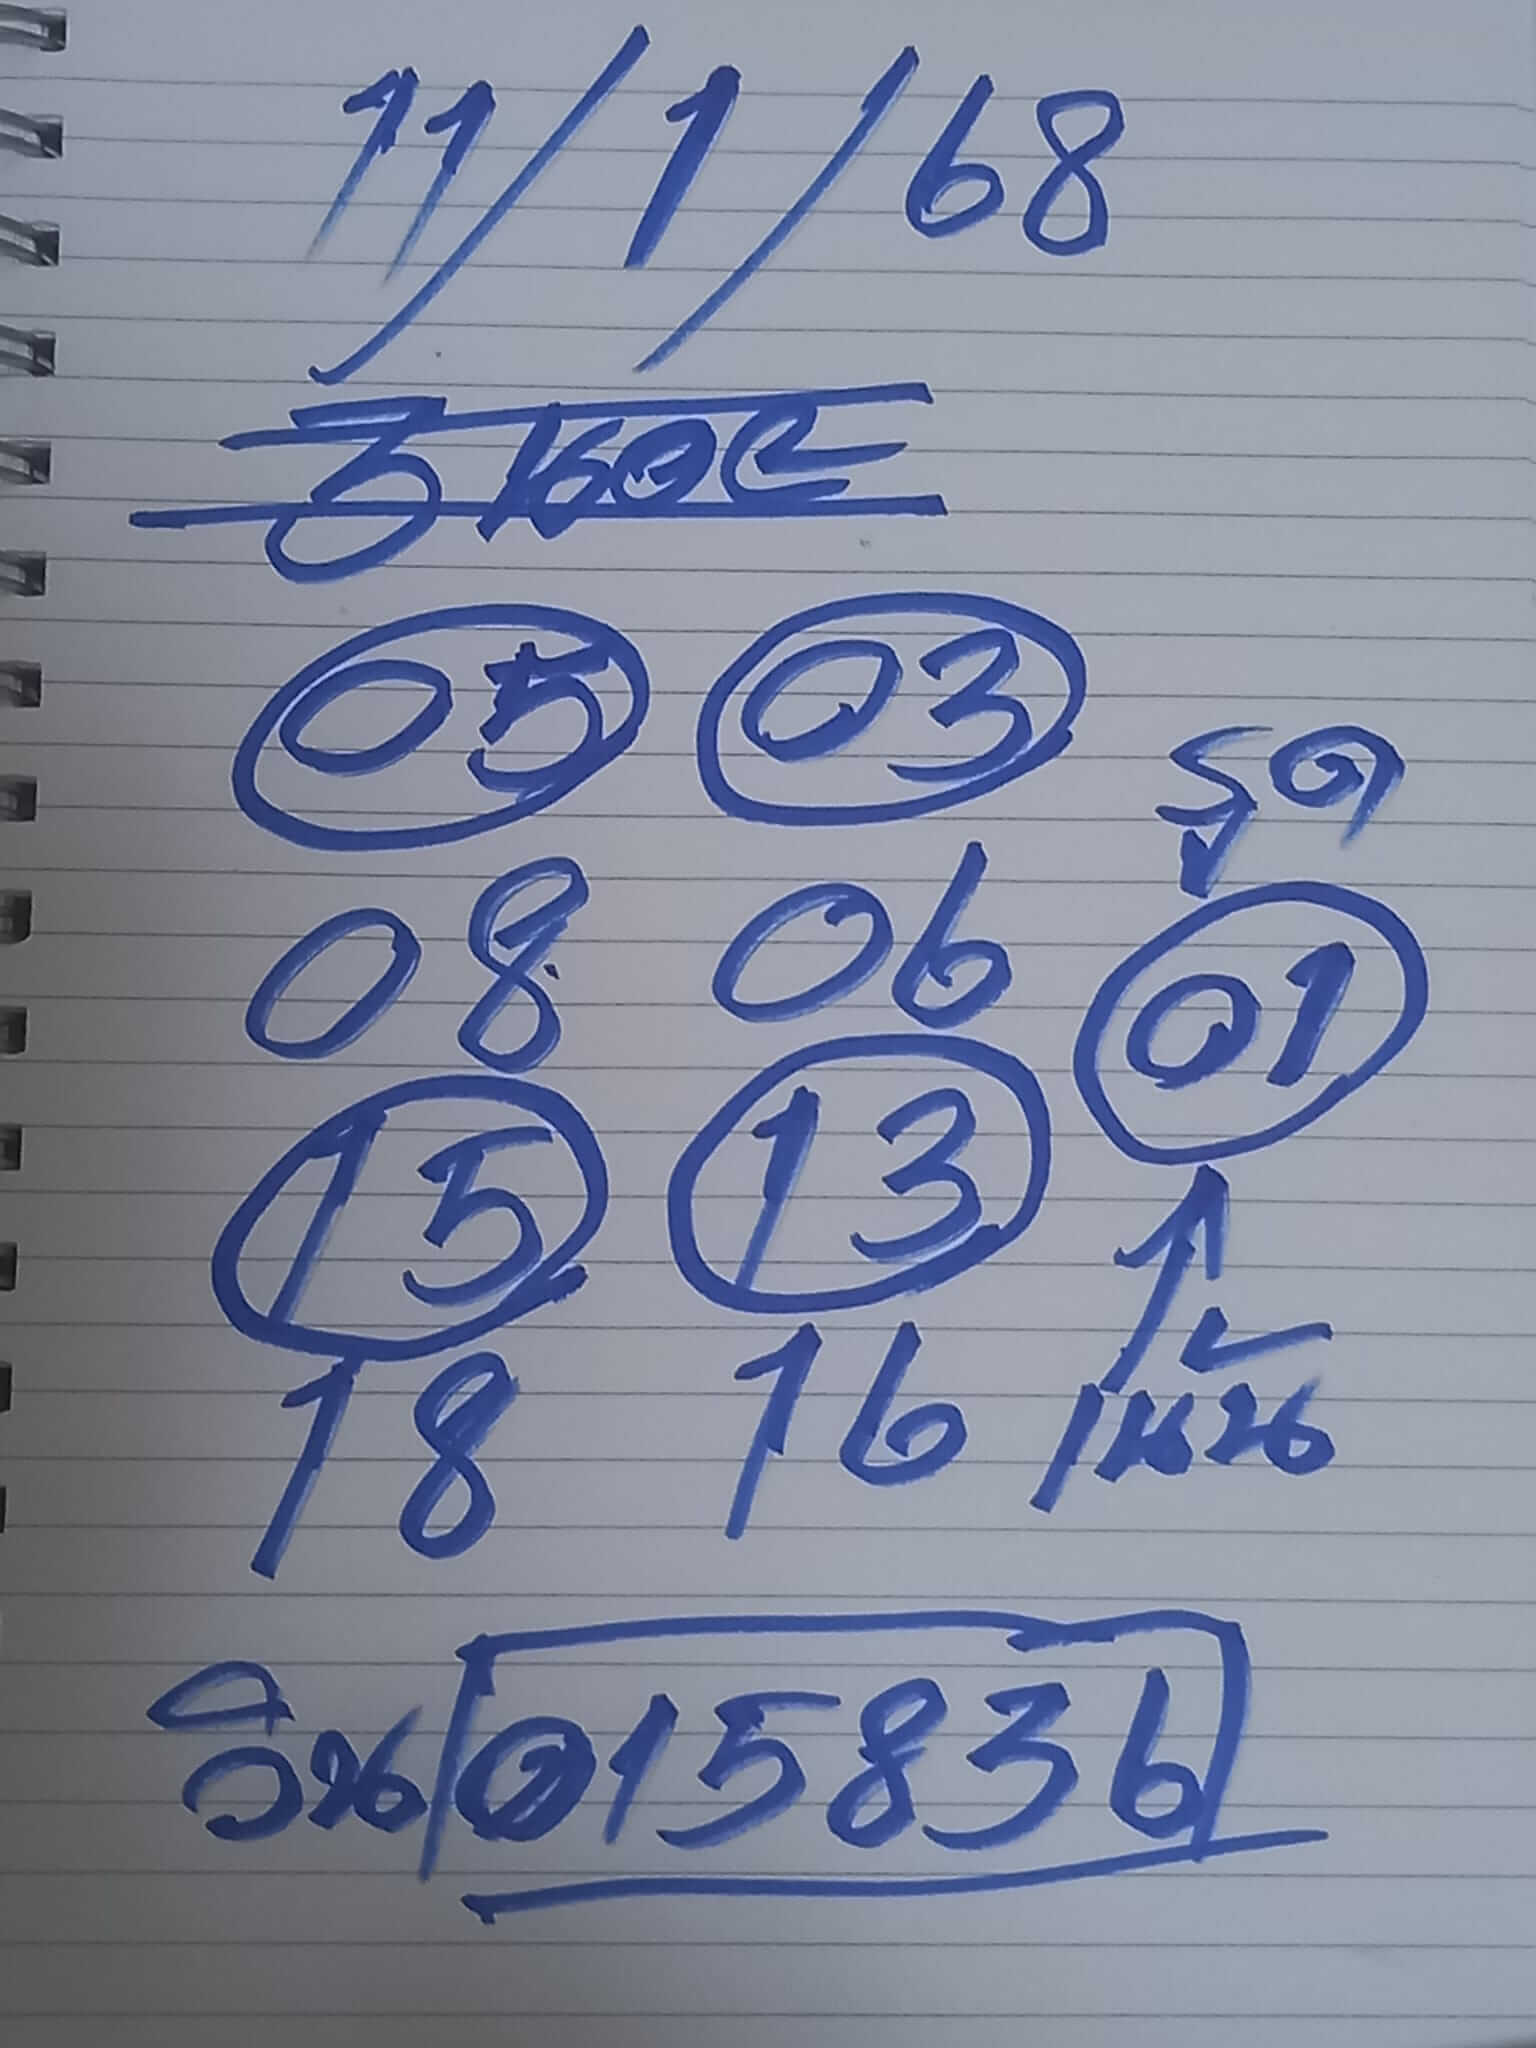 11/1/68
05 03
รูด
08 06
01
15 13
18 16
เน้น
วิน 015836